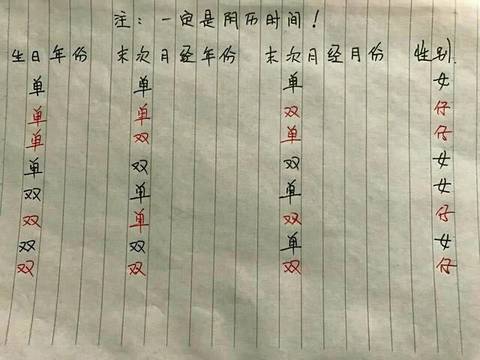 注：一定是阴历时间！
生日年份 末次月经年份 末次月经月份 性别
单 单 单 女
单 单 双 仔
单 双 单 仔
单 双 双 女
双 单 单 女
双 单 双 仔
双 双 单 女
双 双 双 仔